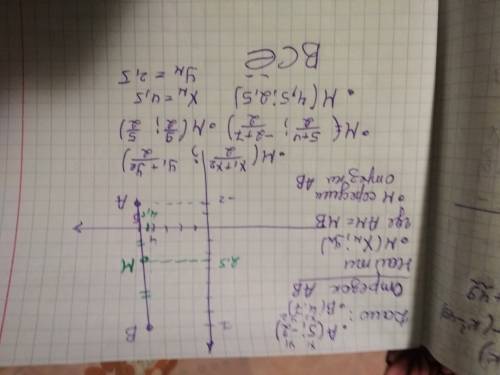 Дано:
x₁ y₁
• A(5;-2)
x₂ y₂
• B(4;7)
Отрезок AB
Найти
• M(Xм;yм)
где AM = MB
• M середина
отрезка AB
• M(x₁+x₂/2; y₁+y₂/2)
• M(5+4/2; -2+7/2) • M(9/2; 5/2)
• M(4,5;2,5) Xм = 4,5
yм = 2,5
ВСЁ
7
2,5
-2
4
4,5
5
A
M
B